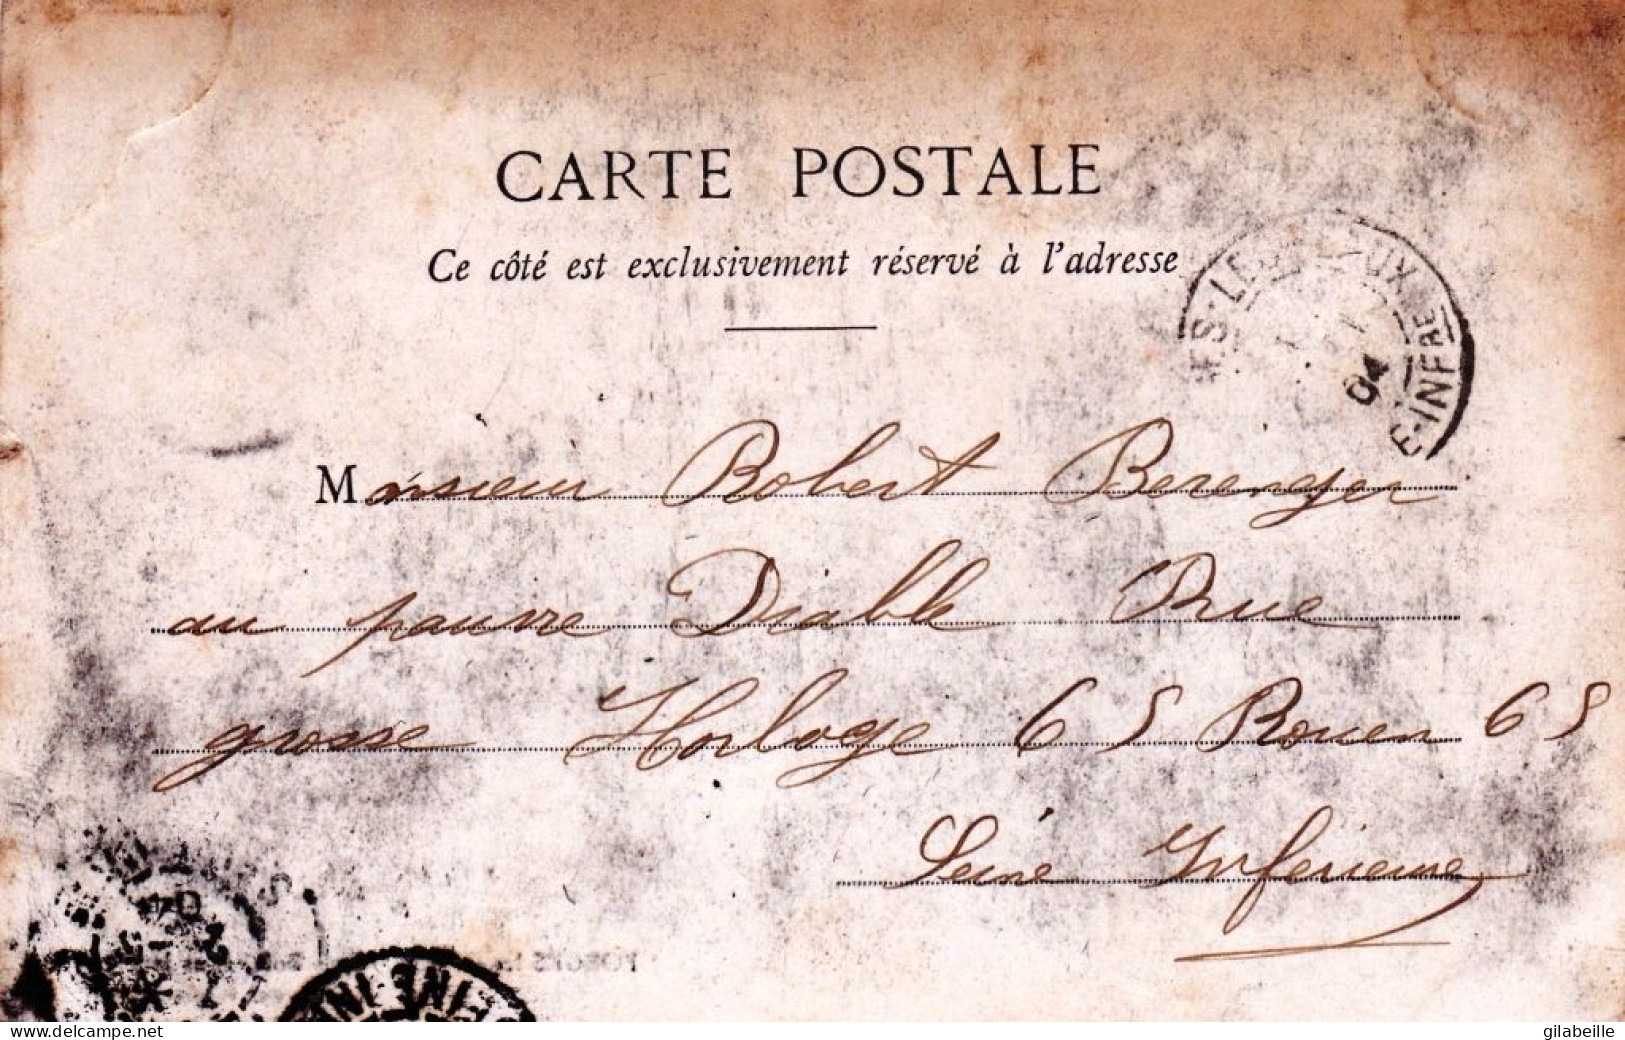 CARTE POSTALE
Ce côté est exclusivement réservé à l'adresse
ES-LES UX
E-INFRE
04
Monsieur Robert Berenger
au pauvre Diable Rue
grosse Horloge 65 Rouen 65
Seine Inferieure
04
EINE-IN
www.delcampe.net
gilabeille